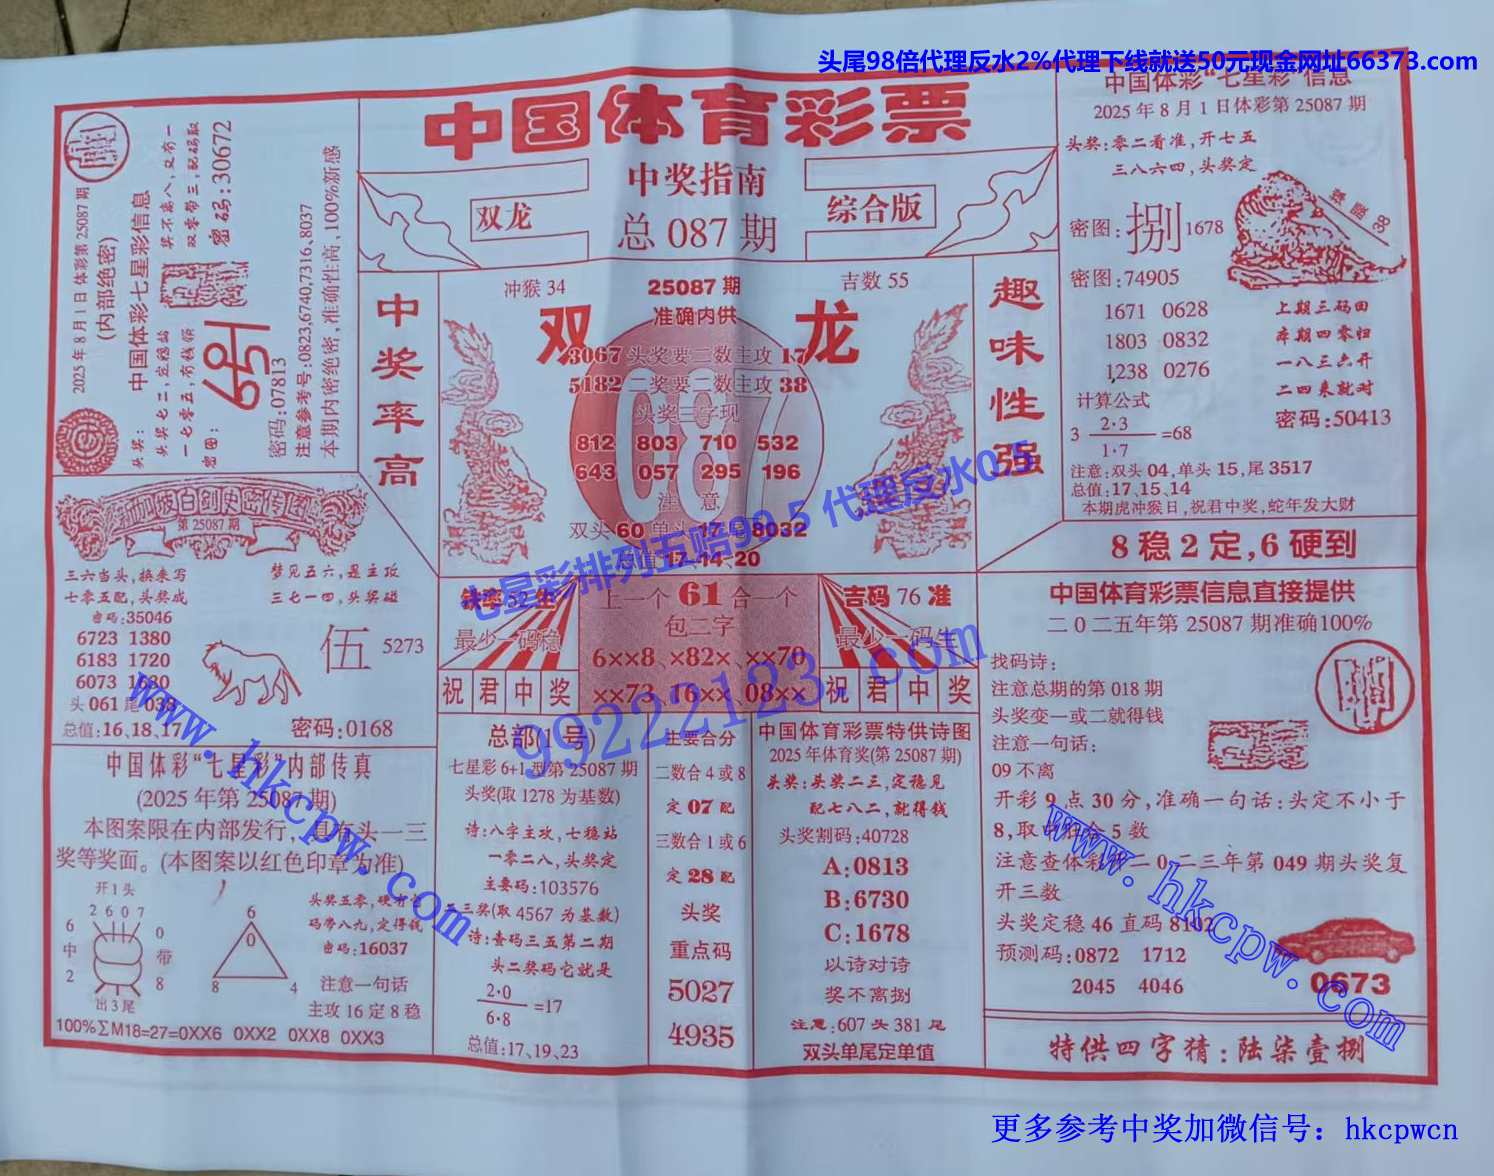 头尾98倍代理反水2%代理下线就送50元现金网址66373.com
中国体育彩票
中奖指南
双龙
综合版
总 087 期
2025 年 8 月 1 日 体彩第 25087 期
(内部绝密)
中国体彩七星彩信息
头奖:
头奖七二,直稳站
一七零五,有钱领
密图:
奖不离八,又有一
双零带三,配码取
密码:30672
密码:07813
注意参考号:0823,6740,7316、8037
本期内密绝密,准确性高、100%新感
中奖率高
冲猴 34
25087 期
吉数 55
双
准确内供
龙
3067 头奖要二数主攻 17
5182 二奖要二数主攻 38
头奖三字现
087
812 803 710 532
643 057 295 196
注 意
双头 60 单头 17 尾 8032
总值 17-14-20
趣味性强
中国体彩"七星彩"信息
2025 年 8 月 1 日体彩第 25087 期
头奖:零二看准,开七五
三八六四,头奖定
密图: 捌 1678
38
密图:74905
1671 0628
1803 0832
1238 0276
上期三码田
本期四零归
一八三六开
二四来就对
密码:50413
计算公式
3 2·3/1·7 =68
注意:双头 04,单头 15,尾 3517
总值:17、15、14
本期虎冲猴日,祝君中奖,蛇年发大财
8 稳 2 定,6 硬到
第 25087 期
三六当头,换来写
七零五配,头奖成
梦见五六,是主攻
三七一四,头奖磁
密码:35046
6723 1380
6183 1720
6073 1680
头 061 尾 038
总值:16、18、17
伍 5273
密码:0168
最少一码稳
上一个 61 合一个
包二字
6××8、×82×、××70
××73、16××、08××
吉码 76 准
最少一码生
祝君中奖
祝君中奖
中国体彩"七星彩"内部传真
(2025 年第 25087 期)
本图案限在内部发行,且有头一三
奖等奖面。(本图案以红色印章为准)
开1头
2 6 0 7
6 中 2
0 带 8
出3尾
6
0
8 4
头奖五零,硬才
码带八九,定得钱
密码:16037
注意一句话
主攻 16 定 8 稳
100%∑M18=27=0XX6 0XX2 0XX8 0XX3
总部(1号)
七星彩 6+1 型第 25087 期
头奖(取 1278 为基数)
诗:八字主攻,七稳站
一零二八,头奖定
主要码:103576
二三奖(取 4567 为基数)
诗:查码三五第二期
头二奖码它就是
2·0/6·8 =17
总值:17、19、23
主要合分
二数合 4 或 8
定 07 配
三数合 1 或 6
定 28 配
头奖
重点码
5027
4935
中国体育彩票特供诗图
2025 年体育奖(第 25087 期)
头奖:头奖二三,定稳见
配七八二,就得钱
头奖割码:40728
A:0813
B:6730
C:1678
以诗对诗
奖不离捌
注意:607 头 381 尾
双头单尾定单值
中国体育彩票信息直接提供
二０二五年第 25087 期准确100%
找码诗:
注意总期的第 018 期
头奖变一或二就得钱
注意一句话:
09 不离
开彩 9 点 30 分,准确一句话:头定不小于
8,取中肚合 5 数
注意查体彩在二０二三年第 049 期头奖复
开三数
头奖定稳 46 直码 8102
预测码:0872 1712
2045 4046
0673
特供四字猜:陆柒壹捌
七星彩排列五赔99.5 代理反水0.5
99222123.com
www.hkcpw.com
www.hkcpw.com
更多参考中奖加微信号：hkcpwcn